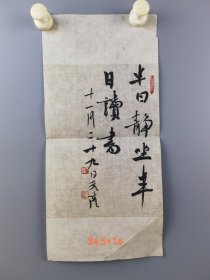 半日静坐半
日讀书
十一月二十九日天濤
34.5×16